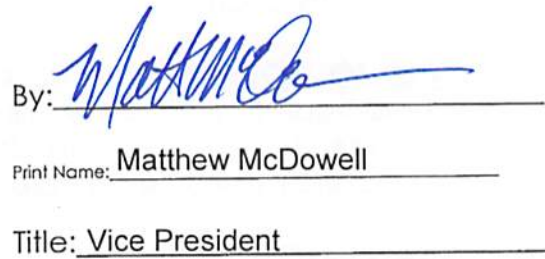 By: Matt McDo
Print Name: Matthew McDowell
Title: Vice President